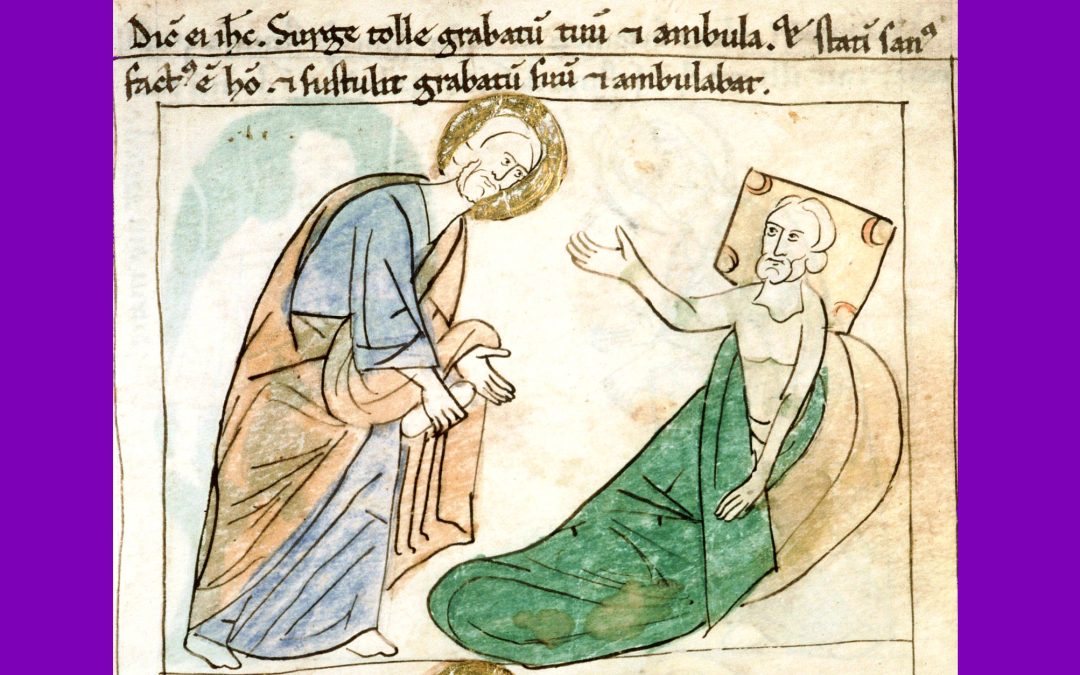 Dic̄ ei ih̄c. Surge tolle grabatū tuū ⁊ ambula. & statī san⁹
fact⁹ ē hō. ⁊ sustulit grabatū suū ⁊ ambulabat.